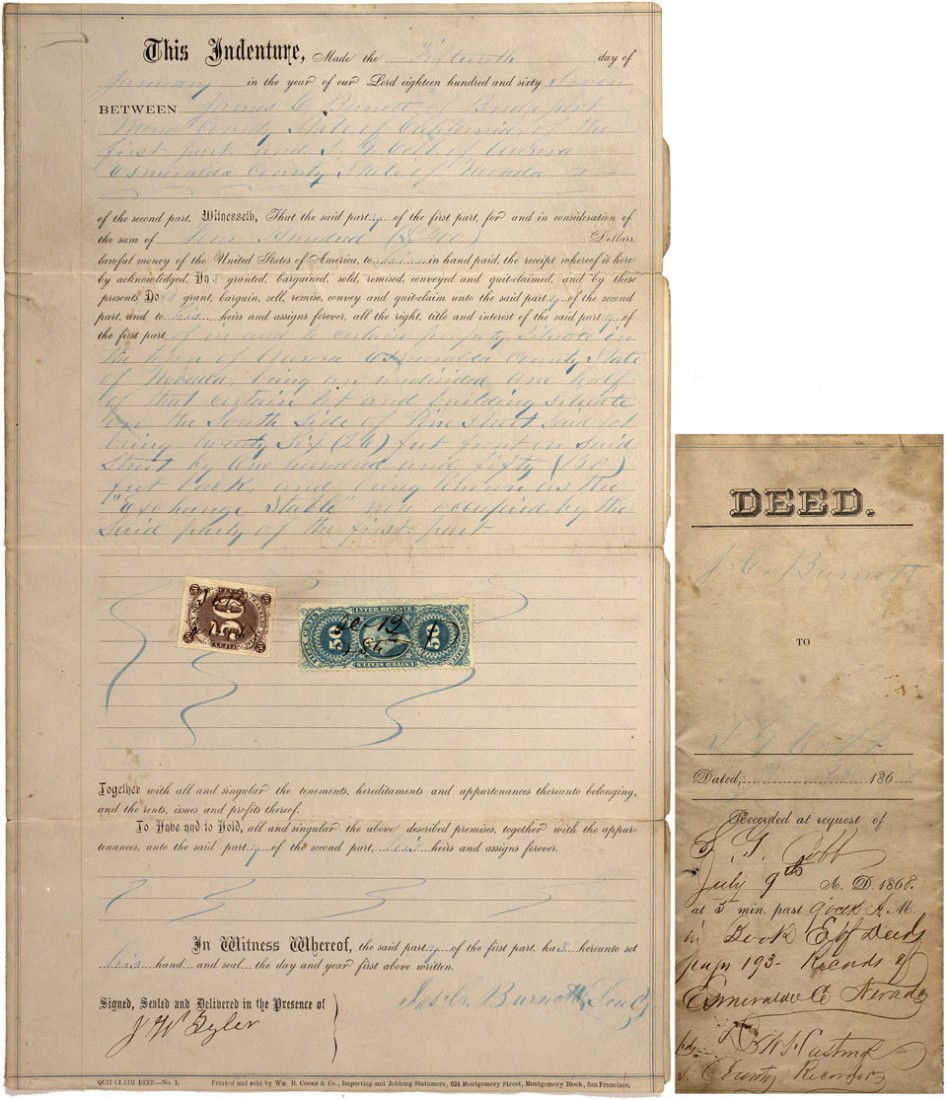 This Indenture, Made the Fifteenth day of
January in the year of our Lord eighteen hundred and sixty Seven
BETWEEN James C. Burnett of Bridgeport
Mono County State of California, of the
first part and S. G. Cobb of Aurora
Esmeralda County State of Nevada
of the second part, Witnesseth, That the said party of the first part, for and in consideration of
the sum of Hundred Dollars,
lawful money of the United States of America, to in hand paid, the receipt whereof is here-
by acknowledged, Has granted, bargained, sold, remised, conveyed and quit-claimed, and by these
presents, Does grant, bargain, sell, remise, convey and quit-claim unto the said party of the second
part, and to his heirs and assigns forever, all the right, title and interest of the said party of
the first part of in and to certain property situate in
the town of Aurora Esmeralda County State
of Nevada, being an undivided one half
of that certain lot and building situate
on the South Side of Pine Street said lot
being twenty six (26) feet front on said
Street by one hundred and fifty (150)
feet back and being known as the
"Exchange Stable" occupied by the
said party of the first part
50
INTER. REVENUE
50 50
UNITED STATES
Together with all and singular the tenements, hereditaments and appurtenances thereunto belonging,
and the rents, issues and profits thereof.
To Have and to Hold, all and singular the above described premises, together with the appur-
tenances, unto the said party of the second part, his heirs and assigns forever.
In Witness Whereof, the said party of the first part, has hereunto set
his hand and seal the day and year first above written.
Signed, Sealed and Delivered in the Presence of
J W Tyler
Jas. C. Burnett
QUIT-CLAIM DEED—No. 1. Printed and sold by WM. B. COOKE & CO., Importing and Jobbing Stationers, 624 Montgomery Street, Montgomery Block, San Francisco.
DEED.
J. C. Burnett
TO
S. G. Cobb
Dated, 186
Recorded at request of
S. G. Cobb
July 9th A. D. 1868.
at 5 min. past 9 o'clk A. M.
in Book E of Deeds
page 193 - Records of
Esmeralda Co Nevada
County Recorder